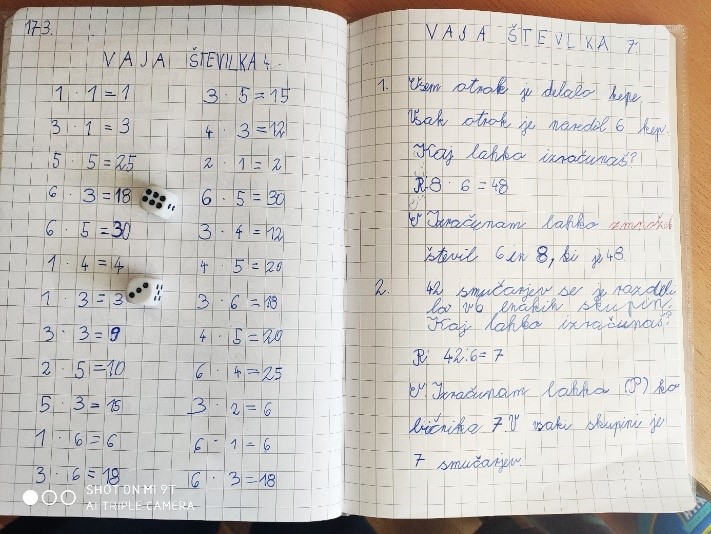 173.
VAJA ŠTEVILKA 4.
1 · 1 = 1
3 · 1 = 3
5 · 5 = 25
6 · 3 = 18
6 · 5 = 30
1 · 4 = 4
1 · 3 = 3
3 · 3 = 9
2 · 5 = 10
5 · 3 = 15
1 · 6 = 6
3 · 6 = 18
3 · 5 = 15
4 · 3 = 12
2 · 1 = 2
6 · 5 = 30
3 · 4 = 12
4 · 5 = 20
3 · 6 = 18
4 · 5 = 20
6 · 4 = 25
3 · 2 = 6
6 · 1 = 6
6 · 3 = 18
SHOT ON MI 9T
AI TRIPLE CAMERA
VAJA ŠTEVLKA 7.
1. otrok je delalo kepe.
Vsak otrok je naredil 6 kep.
Kaj lahko izračunaš?
R: 8 · 6 = 48
O Izračunam lahko zmnožek
števil 6 in 8, ki je 48.
2. 42 smučarjev se je razdeli
lo v 6 enakih skupin.
Kaj lahko izračunaš?
R: 42:6 = 7
O Izračunam lahko (P) ko
ličnika 7. V vsaki skupini je
7 smučarjev.